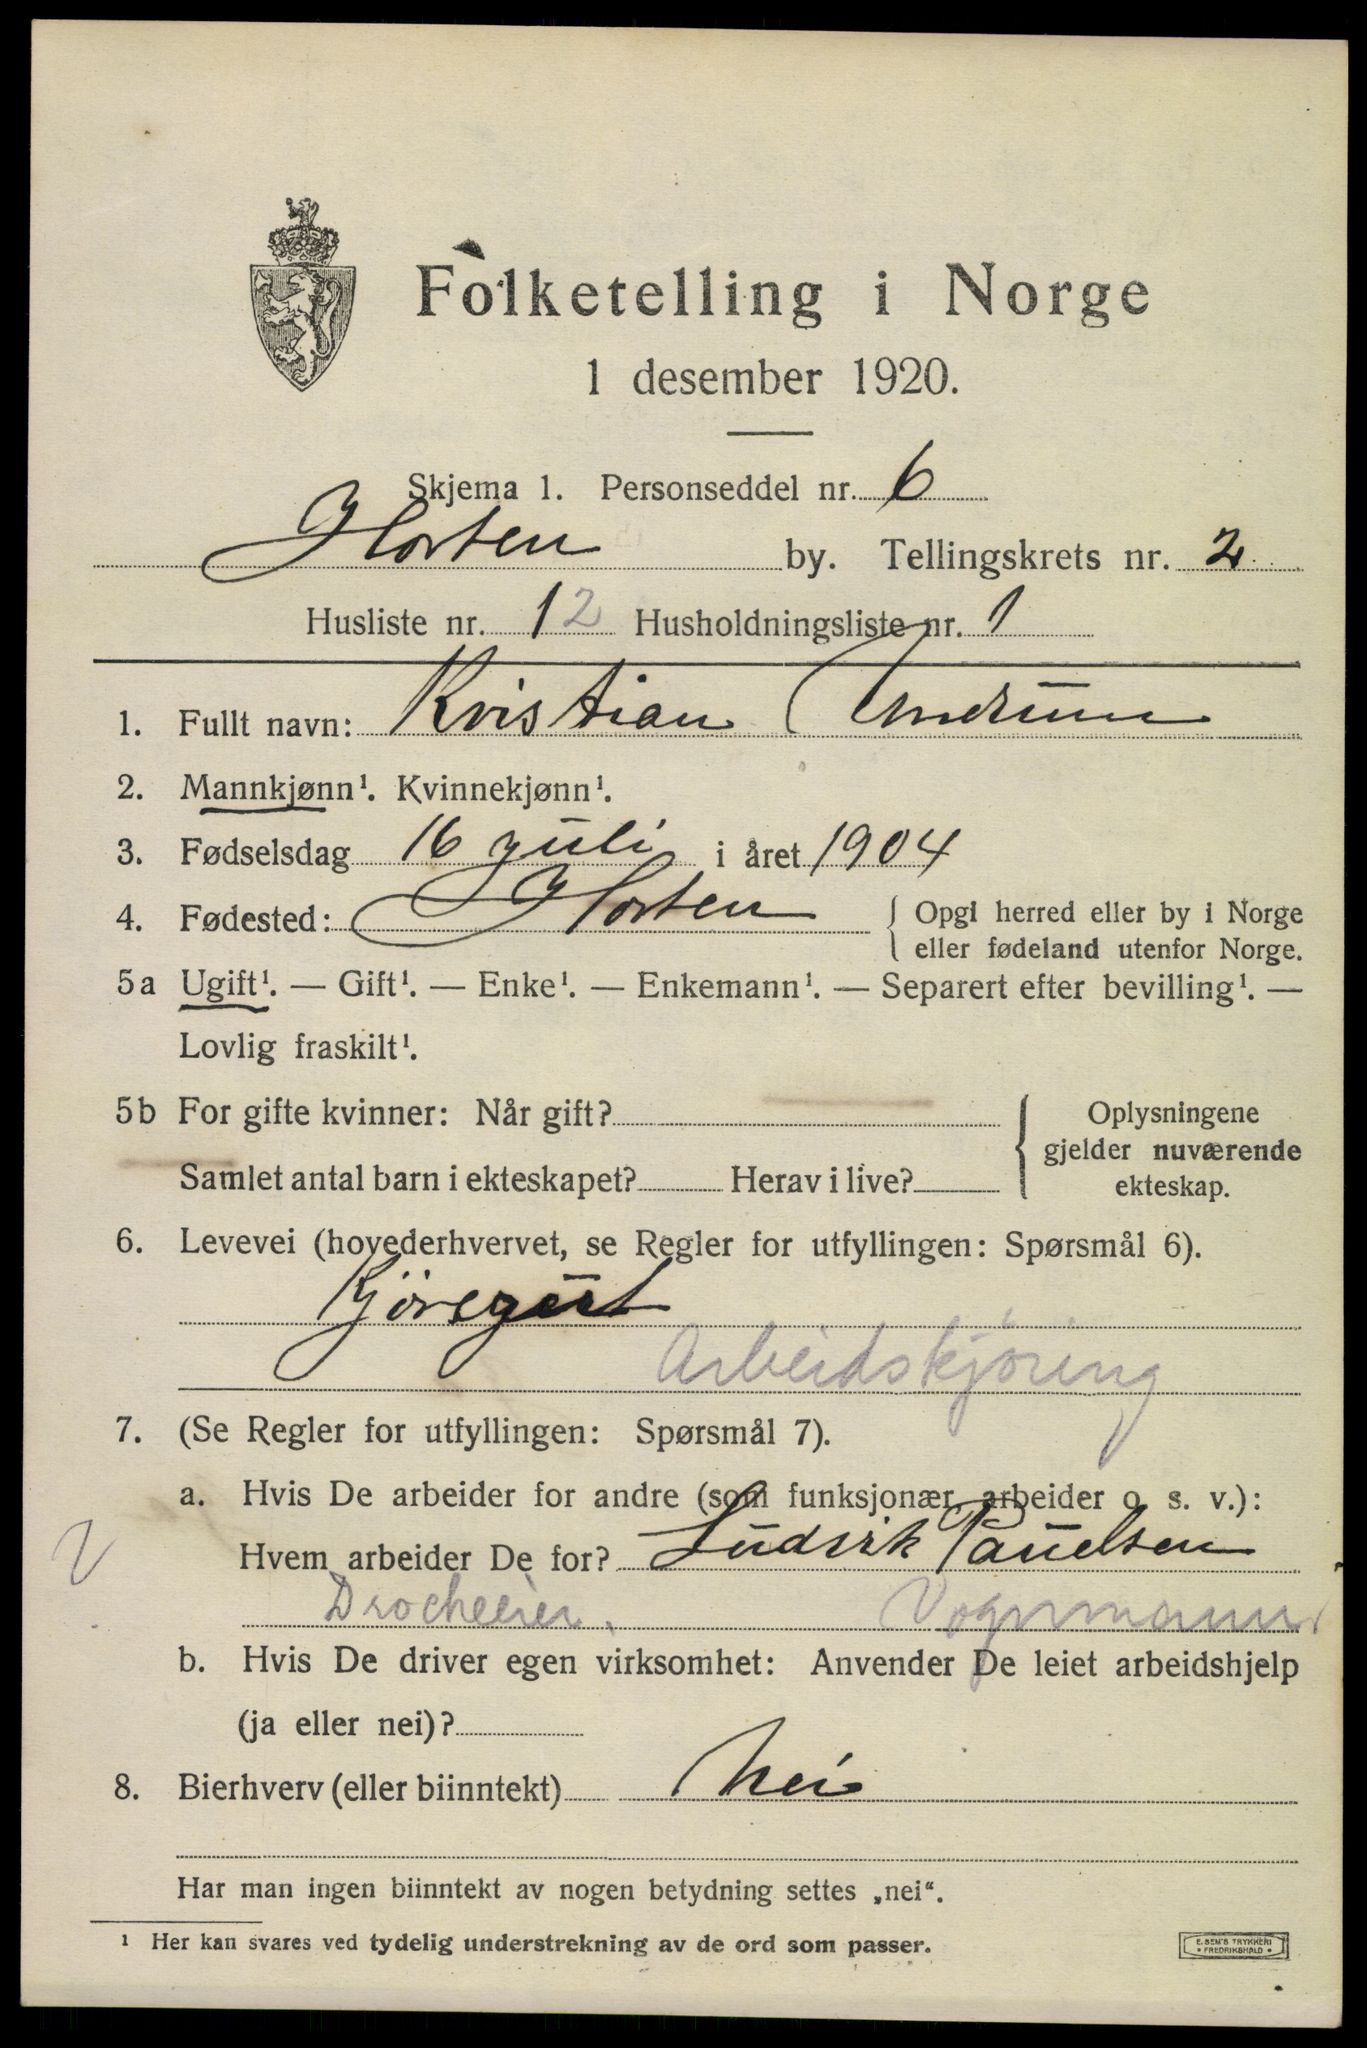 Folketelling i Norge
1 desember 1920.
Skjema 1. Personseddel nr. 6
Horten by. Tellingskrets nr. 2
Husliste nr. 12 Husholdningsliste nr. 1
1. Fullt navn: Kristian
2. Mannkjønn¹. Kvinnekjønn¹.
3. Fødselsdag 16 juli i året 1904
4. Fødested: Horten { Opgi herred eller by i Norge
eller fødeland utenfor Norge.
5a Ugift¹. — Gift¹. — Enke¹. — Enkemann¹. — Separert efter bevilling¹. —
Lovlig fraskilt¹.
5b For gifte kvinner: Når gift? { Oplysningene
gjelder nuværende
Samlet antal barn i ekteskapet? Herav i live? ekteskap.
6. Levevei (hovederhvervet, se Regler for utfyllingen: Spørsmål 6).
Kjöregut
Arbeidskjöring
7. (Se Regler for utfyllingen: Spørsmål 7).
a. Hvis De arbeider for andre (som funksjonær, arbeider o. s. v.):
Hvem arbeider De for? Ludvik Pauelsen
Drocheeier. Vognmann
b. Hvis De driver egen virksomhet: Anvender De leiet arbeidshjelp
(ja eller nei)?
8. Bierhverv (eller biinntekt) Nei
Har man ingen biinntekt av nogen betydning settes „nei“.
¹ Her kan svares ved tydelig understrekning av de ord som passer.
E. SEM'S TRYKKERI
FREDRIKSHALD